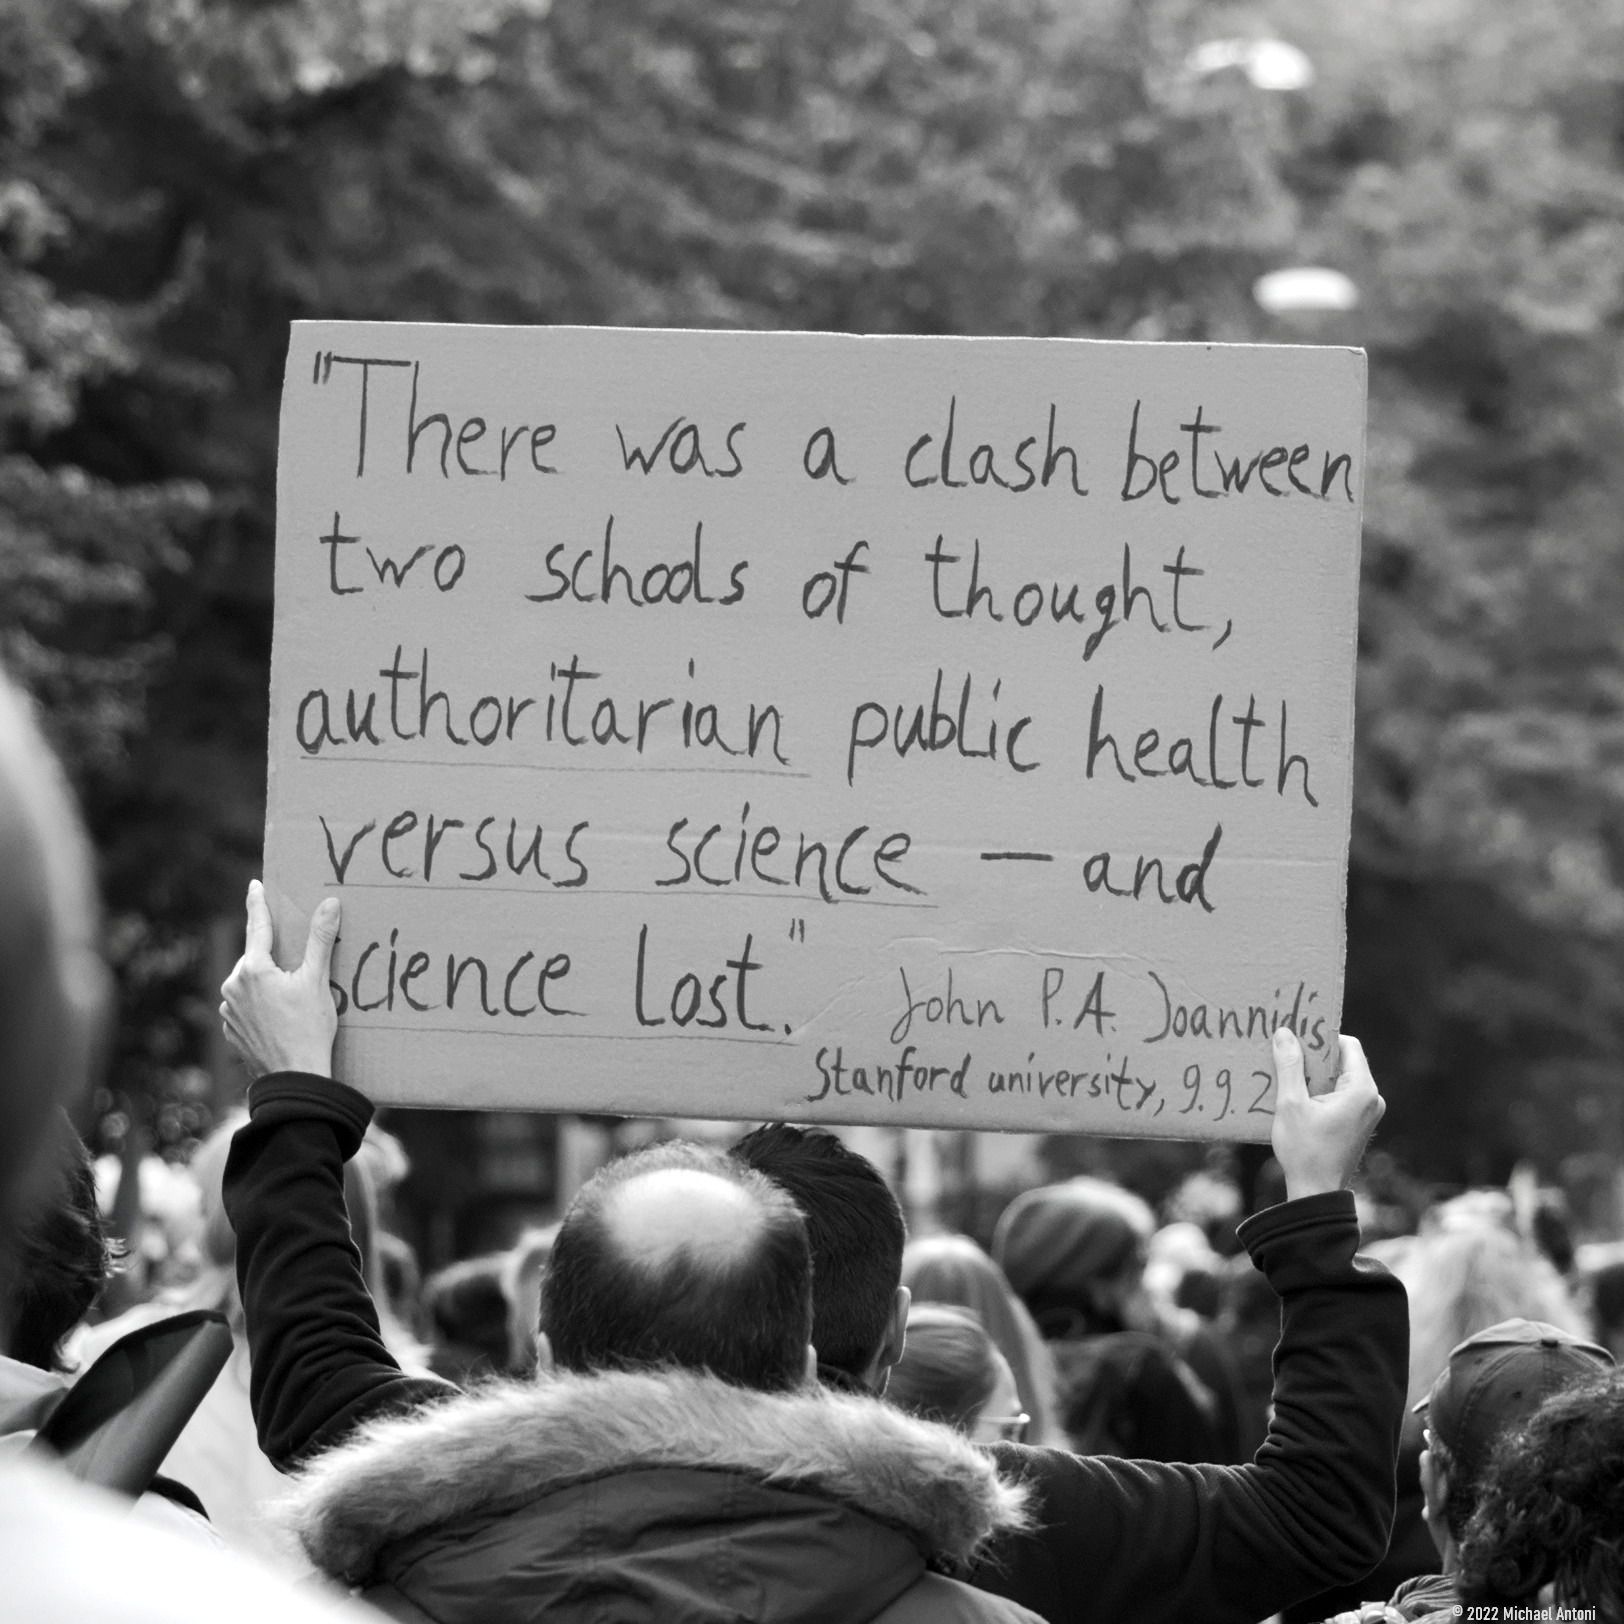 "There was a clash between
two schools of thought,
authoritarian public health
versus science – and
science lost."
John P.A. Joannidis,
Stanford university, 9.9.2
© 2022 Michael Antoni